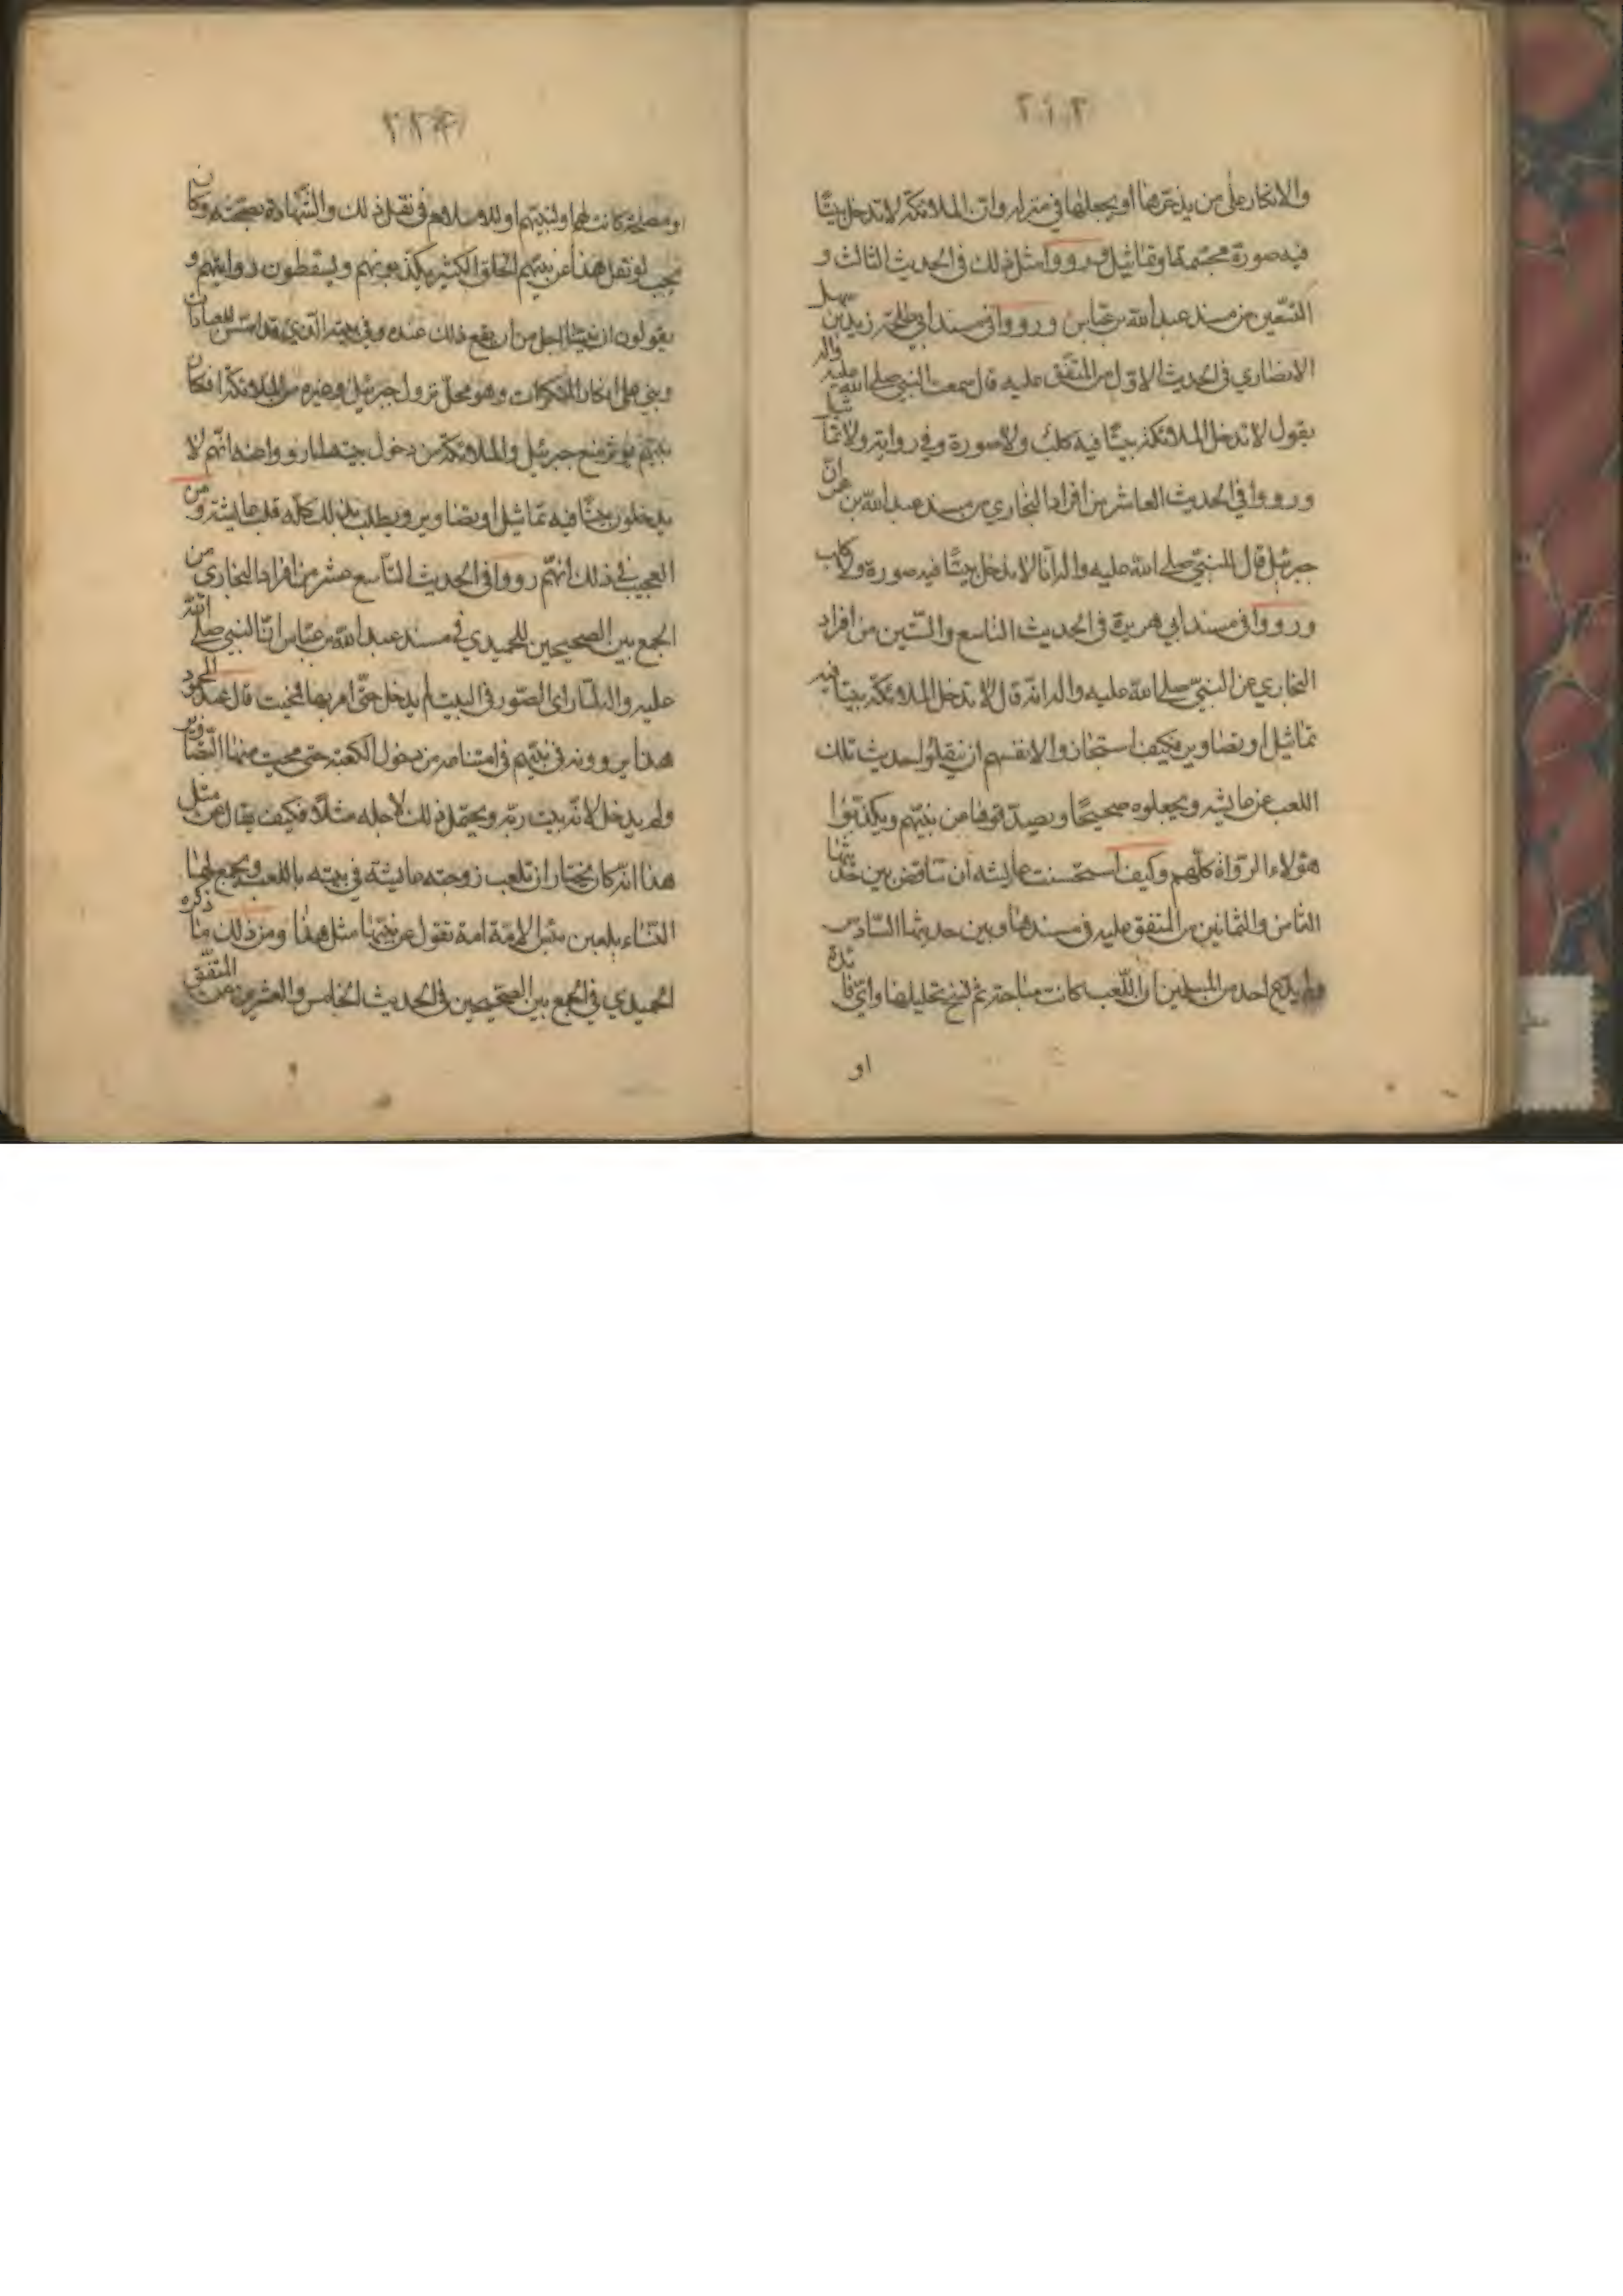 والانكار على من يذخرها او يجعلها في منزله وان الملائكة لا تدخل بيتا
فيه صورة مجسمة او تماثيل ورووا مثل ذلك في الحديث الثالث و
التسعين من مسند عبد الله بن عباس ورووا في مسند ابي طلحة زيد بن سهل
الانصاري في الحديث الاول من المتفق عليه قال سمعت النبي صلى الله عليه واله
يقول لا تدخل الملائكة بيتا فيه كلب ولا صورة وفي رواية ولا تماثيل
ورووا في الحديث العاشر من افراد البخاري من مسند عبد الله بن عمر ان
جبرئيل قال للنبي صلى الله عليه واله انا لا ندخل بيتا فيه صورة ولا كلب
ورووا في مسند ابي هريرة في الحديث التاسع والستين من افراد
البخاري عن النبي صلى الله عليه واله انه قال لا تدخل الملائكة بيتا فيه
تماثيل او تصاوير فكيف استجازوا لانفسهم ان ينقلوا حديث تلك
اللعب عن عايشه ويجعلوه صحيحا ويصدقوها عن نبيهم ويكذبوا
هؤلاء الرواة كلهم وكيف استحسنت عايشه ان تناقض بين حديثها
الثامن والثمانين من المتفق عليه في مسندها وبين حديثها السادس
ولم يدع احد من المسلمين ان اللعب كانت مباحة ثم نسخ تحليلها واي فائدة
او
او مصلحة كانت لها او لنبيهم او للاسلام في نقل ذلك والشهادة بصحته وكان
يجب لو نقل هذا عن نبيهم الخلق الكثير يكذبونهم ويسقطون روايتهم و
يقولون ان نبينا اجل من ان يقع ذلك عنده وفي بيته الذي قد اسس للعبادات
وبني على انكار المنكرات وهو محل نزول جبرئيل وغيره من الملائكة افكان
نبيهم يؤثر منع جبرئيل والملائكة من دخول بيته لما رووا عنه انهم لا
يدخلون بيتا فيه تماثيل او تصاوير ويطلب بذلك كله قلب عايشة ومن
العجيب في ذلك انهم رووا في الحديث التاسع عشر من افراد البخاري من
الجمع بين الصحيحين للحميدي في مسند عبد الله بن عباس ان النبي صلى الله
عليه واله لما راى الصور في البيت لم يدخل حتى امر بها فمحيت قال عبد المحمود
هذا يروونه في نبيهم في امتناعه من دخول الكعبة حتى محيت منها التصاوير
ولم يدخل لانه بيت ربه ويحتمل ذلك لاجله مثلا فكيف يقال عن مثل
هذا انه كان يختار ان تلعب زوجته عايشة في بيته باللعب ويجمع لها
النساء يلعبن بئس الامة امة تقول عن نبيها مثل هذا ومن ذلك ما ذكره
الحميدي في الجمع بين الصحيحين في الحديث الخامس والعشرين من المتفق